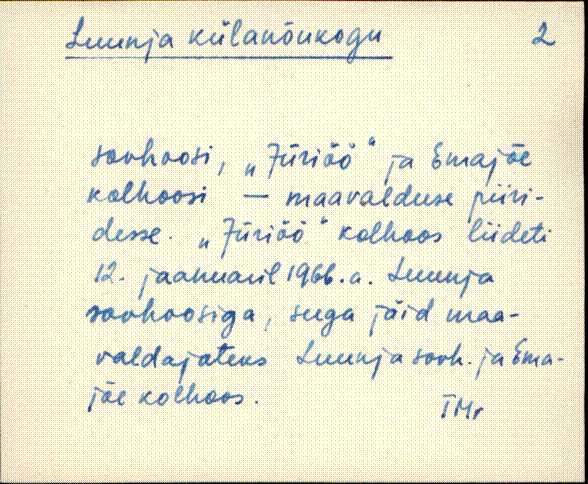 Luunja külanõukogu 2
sovhoosi, „Jüriöö" ja Emajõe
kolhoosi — maavalduse piiri-
desse. „Jüriöö" kolhoos liideti
12. jaanuaril 1966. a. Luunja
sovhoosiga, seega jäid maa-
valdajateks Luunja sovh. ja Ema-
jõe kolhoos.
TMr